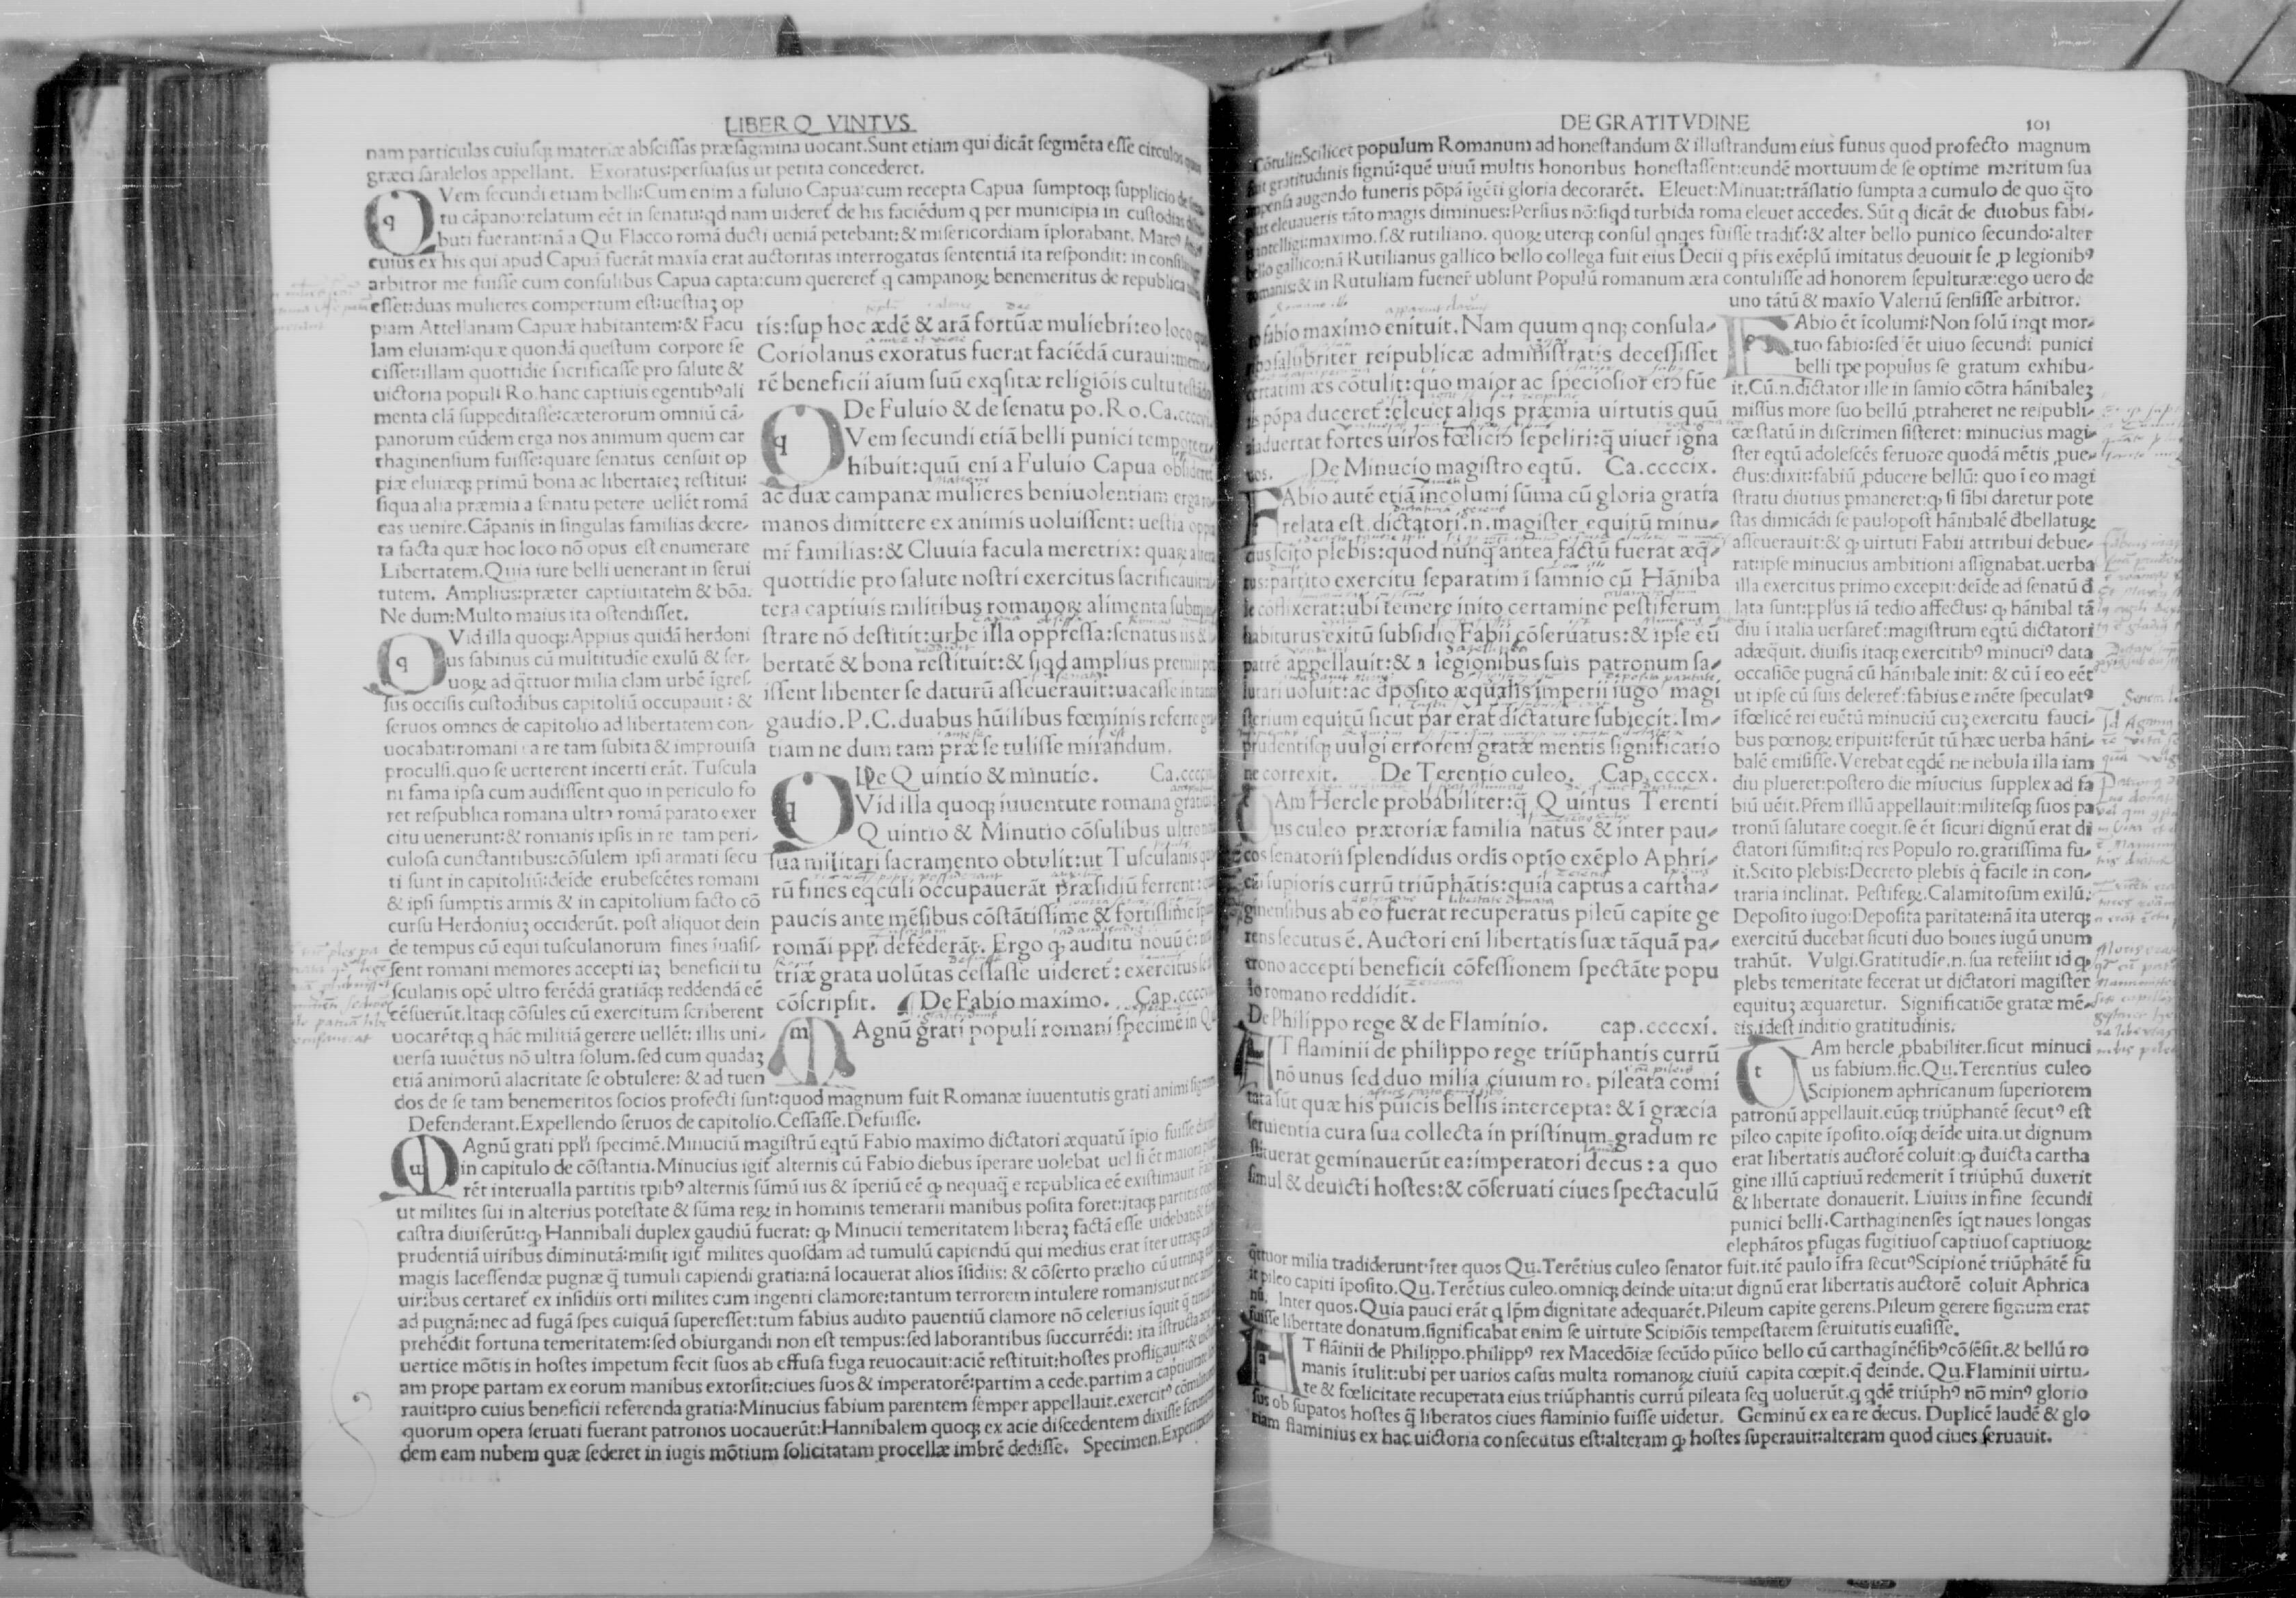 LIBER Q VINTVS
nam particulas cuiusqꝫ materiæ abscissas præsagmina uocant. Sunt etiam qui dicāt segmēta esse circulos quos
græci saralelos appellant. Exoratus: persuasus ut petita concederet.
QVem secundi etiam belli: Cum enim a fuluio Capua: cum recepta Capua sumptoqꝫ supplicio de
tu cāpano: relatum eēt in senatu: qd nam uideret̄ de his faciēdum q per municipia in custodias
buti fuerant: nā a Qu. Flacco romā ducti ueniā petebant: & misericordiam īplorabant. Marcꝰ
cuius ex his qui apud Capuā fuerāt maxīa erat auctoritas interrogatus sententiā ita respondit: in
arbitror me fuisse cum consulibus Capua capta: cum quereret̄ q campanoꝝ benemeritus de republica
esset: duas mulieres compertum est: uestiaꝫ op
piam Attellanam Capuæ habitantem: & Facu
lam eluiam: quæ quondā questum corpore fe
cisset: illam quottidie sacrificasse pro salute &
uictoria populi Ro. hanc captiuis egentibꝰ ali
menta clā suppeditasse: cæterorum omniū cā-
panorum eūdem erga nos animum quem car
thaginensium fuisse: quare senatus censuit op
piæ eluiæqꝫ primū bona ac libertateꝫ restitui:
siqua alia præmia a senatu petere uellēt romā
eas uenire. Cāpanis in singulas familias decre-
ta facta quæ hoc loco nō opus est enumerare
Libertatem. Quia iure belli uenerant in serui
tutem. Amplius: præter captiuitatem & bōa.
Ne dum: Multo maius ita ostendisset.
QVid illa quoqꝫ: Appius quidā herdoni
us sabinus cū multitudīe exulū & ser-
uoꝝ ad q̄ttuor milia clam urbē īgres-
sus occisis custodibus capitoliū occupauit: &
seruos omnes de capitolio ad libertatem con-
uocabat: romani a re tam subita & improuisa
proculsi. quo se uerterent incerti erāt. Tuscula
ni fama ipsa cum audissent quo in periculo fo
ret respublica romana ultro romā parato exer
citu uenerunt: & romanis ipsis in re tam peri-
culosa cunctantibus: cōsulem ipsi armati secu
ti sunt in capitoliū: deīde erubescētes romani
& ipsi sumptis armis & in capitolium facto cō
cursu Herdoniuꝫ occiderūt. post aliquot dein
de tempus cū equi tusculanorum fines īuasis-
sent romani memores accepti iaꝫ beneficii tu
sculanis opē ultro ferēdā gratiāqꝫ reddendā eē
cēsuerūt. Itaqꝫ cōsules cū exercitum scriberent
uocarētqꝫ q hāc militiā gerere uellēt: illis uni-
uersa iuuētus nō ultra solum. sed cum quadaꝫ
etiā animorū alacritate se obtulere: & ad tuen
dos de se tam benemeritos socios profecti sunt: quod magnum fuit Romanæ iuuentutis grati animi
Defenderant. Expellendo seruos de capitolio. Cessasse. Defuisse.
MAgnū grati ppl'i specimē. Minuciū magistrū eqtū Fabio maximo dictatori æquatū īpio fuisse
in capitulo de cōstantia. Minucius igit̄ alternis cū Fabio diebus īperare uolebat uel si ēt maiora
rēt interualla partitis tpibꝰ alternis sūmū ius & īperiū eē ꝙ nequaq̄ e republica eē existimauit
ut milites sui in alterius potestate & sūma reꝝ in hominis temerarii manibus posita foret: itaqꝫ partitis
castra diuiserūt: ꝙ Hannibali duplex gaudiū fuerat: ꝙ Minucii temeritatem liberaꝫ factā esse uidebat
prudentiā uiribus diminutā: misit igit̄ milites quosdam ad tumulū capiendū qui medius erat īter utraqꝫ
magis lacessendæ pugnæ q̄ tumuli capiendi gratia: nā locauerat alios īsidiis: & cōserto prælio cū
uiribus certaret̄ ex insidiis orti milites cum ingenti clamore: tantum terrorem intulere romanis: ut nec
ad pugnā: nec ad fugā spes cuiquā superesset: tum fabius audito pauentiū clamore nō celerius īquit q̄
prehēdit fortuna temeritatem: sed obiurgandi non est tempus: sed laborantibus succurrēdi: ita īstructa
uertice mōtis in hostes impetum fecit suos ab effusa fuga reuocauit: aciē restituit: hostes profligauit:
am prope partam ex eorum manibus extorsit: ciues suos & imperatorē: partim a cede. partim a captiuitate
rauit: pro cuius beneficii referenda gratia: Minucius fabium parentem semper appellauit. exercitꝰ
quorum opera seruati fuerant patronos uocauerūt: Hannibalem quoqꝫ ex acie discedentem dixisse
dem eam nubem quæ sederet in iugis mōtium solicitatam procellæ imbrē dedisse. Specimen.
tis: sup hoc ædē & arā fortūæ muliebri: eo loco
Coriolanus exoratus fuerat faciēdā curaui:
rē beneficii aīum suū exqsitæ religiōis cultu
De Fuluio & de senatu po. Ro. Ca.
QVem secundi etiā belli punici
hibuit: quū enī a Fuluio Capua
ac duæ campanæ mulieres beniuolentiam erga
manos dimittere ex animis uoluissent: uestia
mr̄ familias: & Cluuia facula meretrix: quaꝝ
quottidie pro salute nostri exercitus sacrificauit:
tera captiuis militibus romanoꝝ alimenta
strare nō destitit: urbe illa oppressa: senatus iis &
bertatē & bona restituit: & siqd amplius
issent libenter se daturū asseuerauit: uacasse
gaudio. P. C. duabus hūilibus fœminis referre
tiam ne dum tam præ se tulisse mirandum.
De Quintio & minutio. Ca.
QVid illa quoqꝫ iuuentute romana
Quintio & Minutio cōsulibus ultro
sua militari sacramento obtulit: ut Tusculanis
rū fines eqculi occupauerāt præsidiū ferrent:
paucis ante mēsibus cōstātissime & fortissime
romāi ppl'i defēderāt. Ergo ꝙ auditu nouū ē:
triæ grata uolūtas cessasse uideret̄: exercitus
cōscripsit. De Fabio maximo. Cap.
MAgnū grati populi romani specimē in
DE GRATITVDINE 101
Cōtulit: Scilicet populum Romanum ad honestandum & illustrandum eius funus quod profecto magnum
fuit gratitudinis signū: quē uiuū multis honoribus honestassent: eundē mortuum de se optime meritum sua
impensa augendo funeris pōpā īgēti gloria decorarēt. Eleuet: Minuat: trāslatio sumpta a cumulo de quo q̄to
plus eleuaueris tāto magis diminues: Persius nō: siqd turbida roma eleuet accedes. Sūt q dicāt de duobus fabi-
maximo. s. & rutiliano. quoꝝ uterqꝫ consul qnqes fuisse tradit̄: & alter bello punico secundo: alter
bello gallico: nā Rutilianus gallico bello collega fuit eius Decii q p̄ris exēplū imitatus deuouit se ꝓ legionibꝰ
romanis: & in Rutuliam fuener̄ uolunt Populū romanum æra contulisse ad honorem sepulturæ: ego uero de
uno tātū & maxīo Valeriū sensisse arbitror.
ro fabio maximo enituit. Nam quum qnqꝫ consula-
salubriter reipublicæ administratis decessisset
certatim æs cōtulit: quo maior ac speciosior ero fūe
pōpa duceret̄: eleuet aliqs præmia uirtutis quū
aīaduertat fortes uiros fœliciꝰ sepeliri: q̄ uiuer̄ igna
uos. De Minucio magistro eqtū. Ca. ccccix.
FAbio autē etiā incolumi sūma cū gloria gratia
relata est. dictatori. n. magister equitū minu-
cius scito plebis: quod nunq̄ antea factū fuerat æq̄-
tus: partito exercitu separatim ī samnio cū Hāniba
le cōflixerat: ubi temere inito certamine pestiferum
habiturus exitū subsidio Fabii cōseruatus: & ipse eū
patrē appellauit: & a legionibus suis patronum sa-
lutari uoluit: ac dposito æqualis imperii iugo magi
sterium equitū sicut par erat dictature subiecit. Im-
prudentisqꝫ uulgi errorem gratæ mentis significatio
ne correxit. De Terentio culeo. Cap. ccccx.
TAm Hercle probabiliter: q̄ Quintus Terenti
us culeo prætoriæ familia natus & inter pau-
cos senatorii splendidus ordis optīo exēplo Aphri-
cū supioris currū triūphātis: quia captus a cartha-
ginensibus ab eo fuerat recuperatus pileū capite ge
rens secutus ē. Auctori enī libertatis suæ tāquā pa-
trono accepti beneficii cōfessionem spectāte popu
lo romano reddidit.
De Philippo rege & de Flaminio. cap. ccccxi.
AT flaminii de philippo rege triūphantis currū
nō unus sed duo milia ciuium ro. pileata comi
tata sūt quæ his pūicis bellis intercepta: & ī græcia
seruientia cura sua collecta in pristinum gradum re
stituerat geminauerūt ea: imperatori decus: a quo
simul & deuicti hostes: & cōseruati ciues spectaculū
FAbio ēt īcolumi: Non solū inqt mor-
tuo fabio: sed ēt uiuo secundi punici
belli tpe populus se gratum exhibu-
it. Cū. n. dictator ille in samio cōtra hānibaleꝫ
missus more suo bellū ꝓtraheret ne reipubli-
cæ statū in discrimen sisteret: minucius magi-
ster eqtū adolescēs feruore quodā mētis ꝓue-
ctus: dixit: fabiū ꝓducere bellū: quo ī eo magi
stratu diutius ꝑmaneret: ꝙ si sibi daretur pote
stas dimicādi se paulopost hānibalē dbellatuꝝ
asseuerauit: & ꝙ uirtuti Fabii attribui debue-
rat: ipse minucius ambitioni assignabat. uerba
illa exercitus primo excepit: deīde ad senatū d
lata sunt: pplus iā tedio affectus: ꝙ hānibal tā
diu ī italia uersaret̄: magistrum eqtū dictatori
adæquit. diuisis itaqꝫ exercitibꝰ minuciꝰ data
occasiōe pugnā cū hānibale init: & cū ī eo eēt
ut ipse cū suis deleret̄: fabius e mēte speculatꝰ
īfœlicē rei euētū minuciū cuꝫ exercitu fauci-
bus pœnoꝝ eripuit: ferūt tū hæc uerba hāni-
balē emisisse. Verebar eqdē ne nebula illa iam
diu plueret: postero die mīucius supplex ad fa
biū uēit. Pr̄em illū appellauit: militesqꝫ suos pa
tronū salutare coegit. se ēt sicuri dignū erat di
ctatori sūmisit: q res Populo ro. gratissima fu-
it. Scito plebis: Decreto plebis q facile in con-
traria inclinat. Pestifeꝝ. Calamitosum exilū.
Deposito iugo: Deposita paritate: nā ita uterqꝫ
exercitū ducebat sicuti duo boues iugū unum
trahūt. Vulgi. Gratitudīe. n. sua refellit id ꝙ
plebs temeritate fecerat ut dictatori magister
equituꝫ æquaretur. Significatiōe gratæ mē-
tis. idest inditio gratitudinis.
TAm hercle ꝓbabiliter. sicut minuci
us fabium. sic. Qu. Terentius culeo
Scipionem aphricanum superiorem
patronū appellauit. eūqꝫ triūphantē secutꝰ est
pileo capite īposito. oīqꝫ deīde uita. ut dignum
erat libertatis auctorē coluit: ꝙ duicta cartha
gine illū captiuū redemerit ī triūphū duxerit
& libertate donauerit. Liuius in fine secundi
punici belli. Carthaginenses īqt naues longas
elephātos ꝑfugas fugitiuos captiuos captiuoꝝ
q̄ttuor milia tradiderunt: īter quos Qu. Terētius culeo senator fuit. itē paulo īfra secutꝰ Scipionē triūphātē fu
it pileo capiti īposito. Qu. Terētius culeo. omniqꝫ deinde uita: ut dignū erat libertatis auctorē coluit Aphrica
nū. Inter quos. Quia pauci erāt q īpm dignitate adequarēt. Pileum capite gerens. Pileum gerere signum erat
fuisse libertate donatum. significabat enim se uirtute Scipiōis tempestatem seruitutis euasisse.
AT flāinii de Philippo. philippꝰ rex Macedōiæ secūdo pūico bello cū carthaginēsibꝰ cōsēsit. & bellū ro
manis ītulit: ubi per uarios casus multa romanoꝝ ciuiū capita cœpit. q̄ deinde. Qu. Flaminii uirtu-
te & fœlicitate recuperata eius triūphantis currū pileata seq uoluerūt. q qdē triūphꝰ nō minꝰ glorio
sus ob supatos hostes q̄ liberatos ciues flaminio fuisse uidetur. Geminū ex ea re decus. Duplicē laudē & glo
riam flaminius ex hac uictoria consecutus est: alteram ꝙ hostes superauit: alteram quod ciues seruauit.